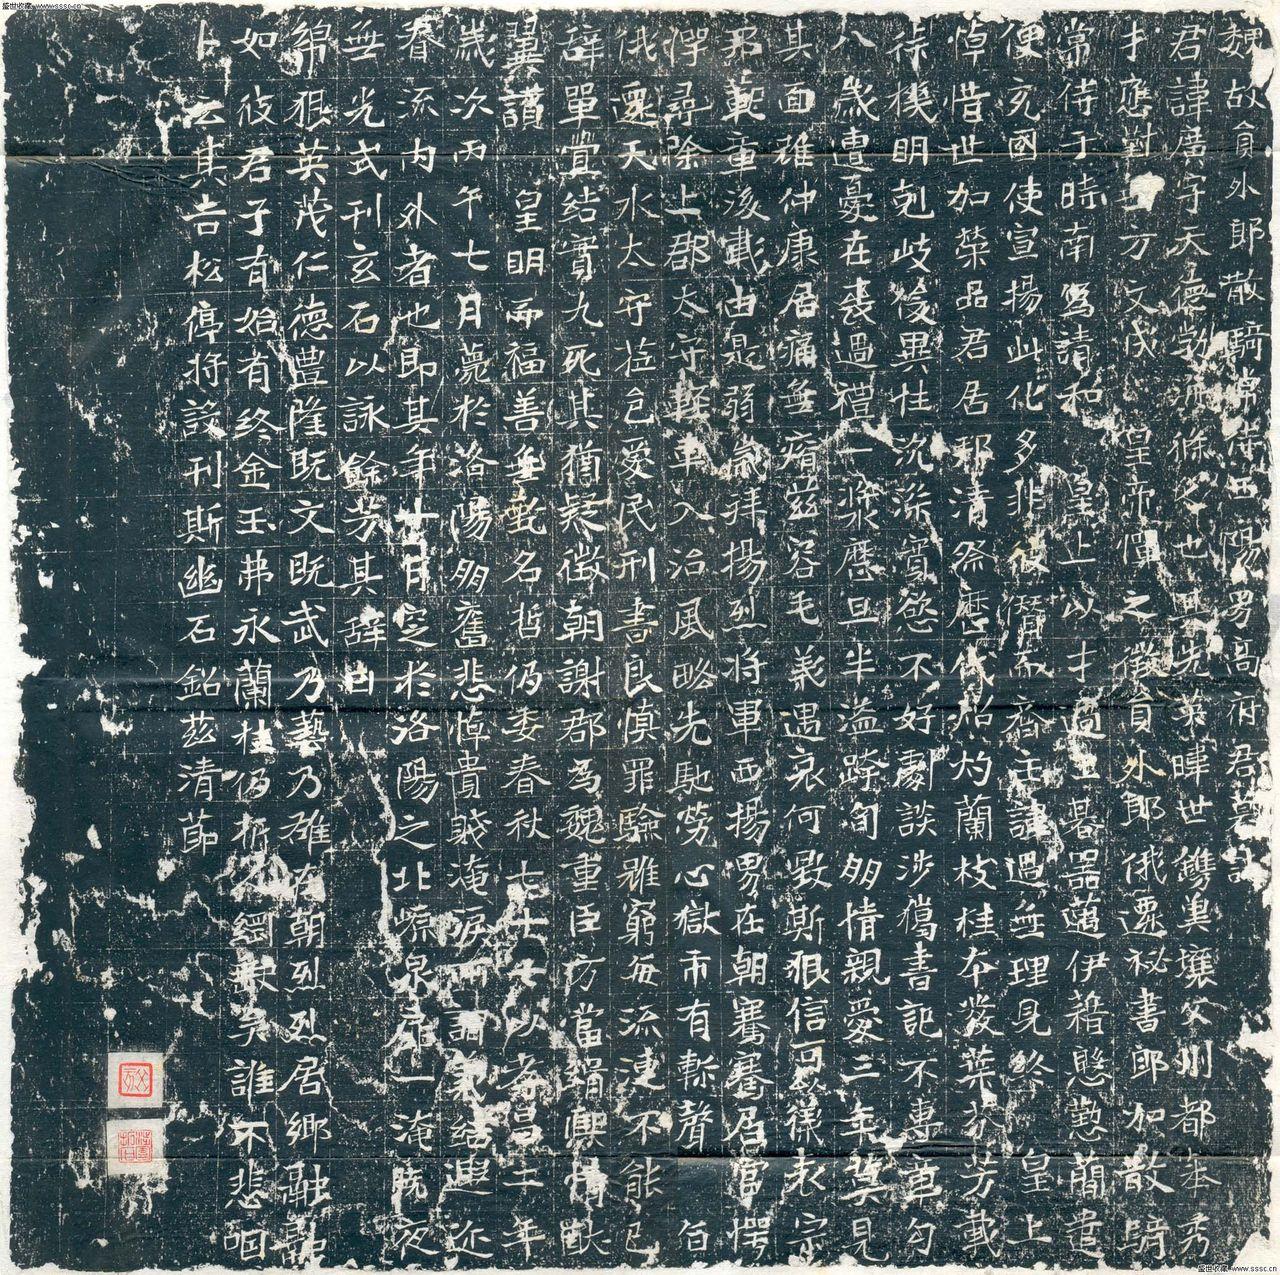 魏故員外郎散騎常侍西陽男高府君墓誌
君諱廣字天德勃海脩人也其先葉暉世鐫奧壤父州都本秀
才應對 方文茂 皇帝憚之徵員外郎俄遷祕書郎加散騎
常侍于時南寫請和 皇上以才過王碁器邁伊藉懸懃簡遣
便充國使宣揚此化多非彼潛而齊主誰過無理見終 皇上
悼惜世加榮品君居邦清祭歷代昭灼蘭枝桂夲發葉芬芳載
挺機明剋岐後異性沉深賞慾不好劇談涉獵書記不專章句
八歲遭憂在喪過禮一漿歷旦半溢踰旬朋情親愛三年冀見
其面雖仲康居痛無瘠茲容毛義遇哀何毀斯狠信可儀表宗
邦範重後載由是弱歲拜揚烈將軍西揚男在朝謇謇居當愕
愕尋除上郡太守輕車入治風略先馳勞心獄市有慚聲 自
俄遷天水太守莅邑愛民刑書良慎罪驗雖窮每流漣不能已
辭單賞結實九死其猶疑徵朝謝郡為魏重臣方當 熙情猷
翼讚 皇明而福善無 名哲仍委春秋 七以孝昌二年
歲次丙午七月薨於洛陽朋舊悲悼貴賤淹淚 結輿近
眷流內外者也即其年 月窆於洛陽之北 泉扉一淹既夜
無光式刊玄石以詠餘芳其辭曰
綿狠英茂仁德豐隆既文既武乃藝乃雄在朝烈烈居鄉融融
如彼君子有始有終金玉弗永蘭桂仍 之 矣誰不悲咽
卜云其吉松停將設刊斯幽石銘茲清節
盛世收藏 www.sssc.cn
盛世收藏 www.sssc.cn